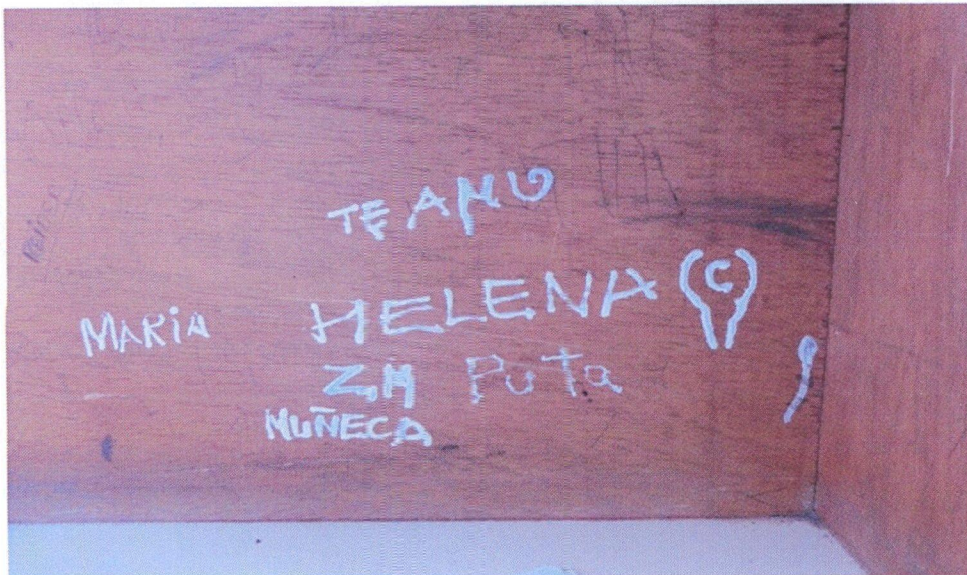 TE AMO
MARIA HELENA (C)
Z,M PuTa
MUÑECA